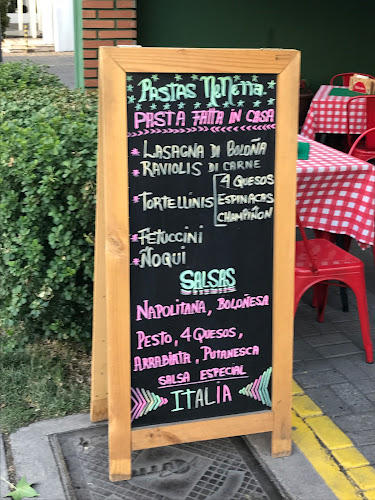 PASTAS NENETTA
PASTA FATTA IN CASA
LASAGNA DI BOLOÑA
RAVIOLIS DI CARNE
TORTELLINIS
4 QUESOS
ESPINACAS
CHAMPIÑON
FETUCCINI
ÑOQUI
SALSAS
NAPOLITANA, BOLOÑESA
PESTO, 4 QUESOS,
ARRABIATA, PUTANESCA
SALSA ESPECIAL
ITALIA